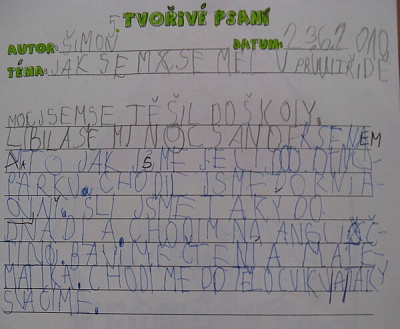 5. TVOŘIVÉ PSANÍ
AUTOR: ŠIMON DATUM: 2 3 6 2 010
TÉMA: JAK SEM X SE MĚL V PRVNÍ TŘÍDĚ
MOC JSEM SE TĚŠIL DO ŠKOLY.
LÍBILA SE MI NOC S
A TO JAK JSME ŠLI DO DINO
PARKU. CHODILI JSME DO KNIH
OVNI. ŠLI JSME AKY DO
DIVADLA. CHODIM NA ANGLIČ
TINO. BAVÍ ME ČTENÍ A MATE
MATIKA. CHODÍME DO TĚLOCVIKU A TAKY
SVAČÍME.